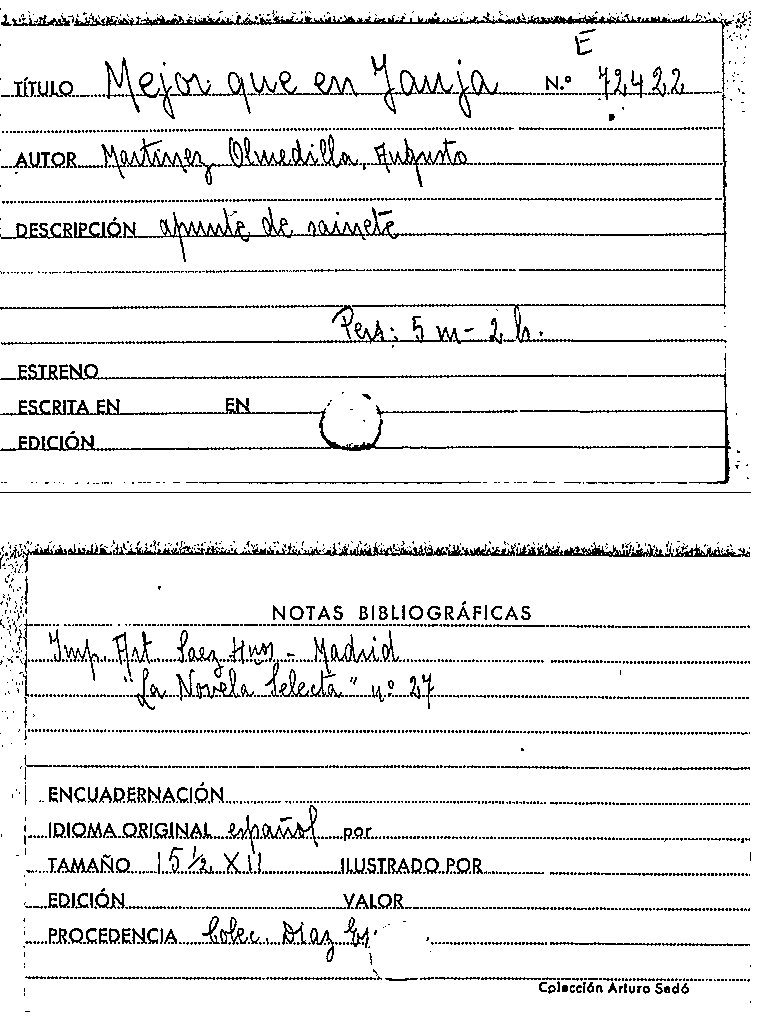 E
TÍTULO Mejor que en Jauja N.º 72422
AUTOR Martínez Olmedilla, Augusto
DESCRIPCIÓN apunte de sainete
Pers: 5 m - 2 h.
ESTRENO
ESCRITA EN EN
EDICIÓN
NOTAS BIBLIOGRÁFICAS
Imp. Art Saez Hnos - Madrid
"La Novela Selecta" nº 27
ENCUADERNACIÓN
IDIOMA ORIGINAL español por
TAMAÑO 15 1/2 X 11 ILUSTRADO POR
EDICIÓN VALOR
PROCEDENCIA Colec. Díaz
Colección Arturo Sedó